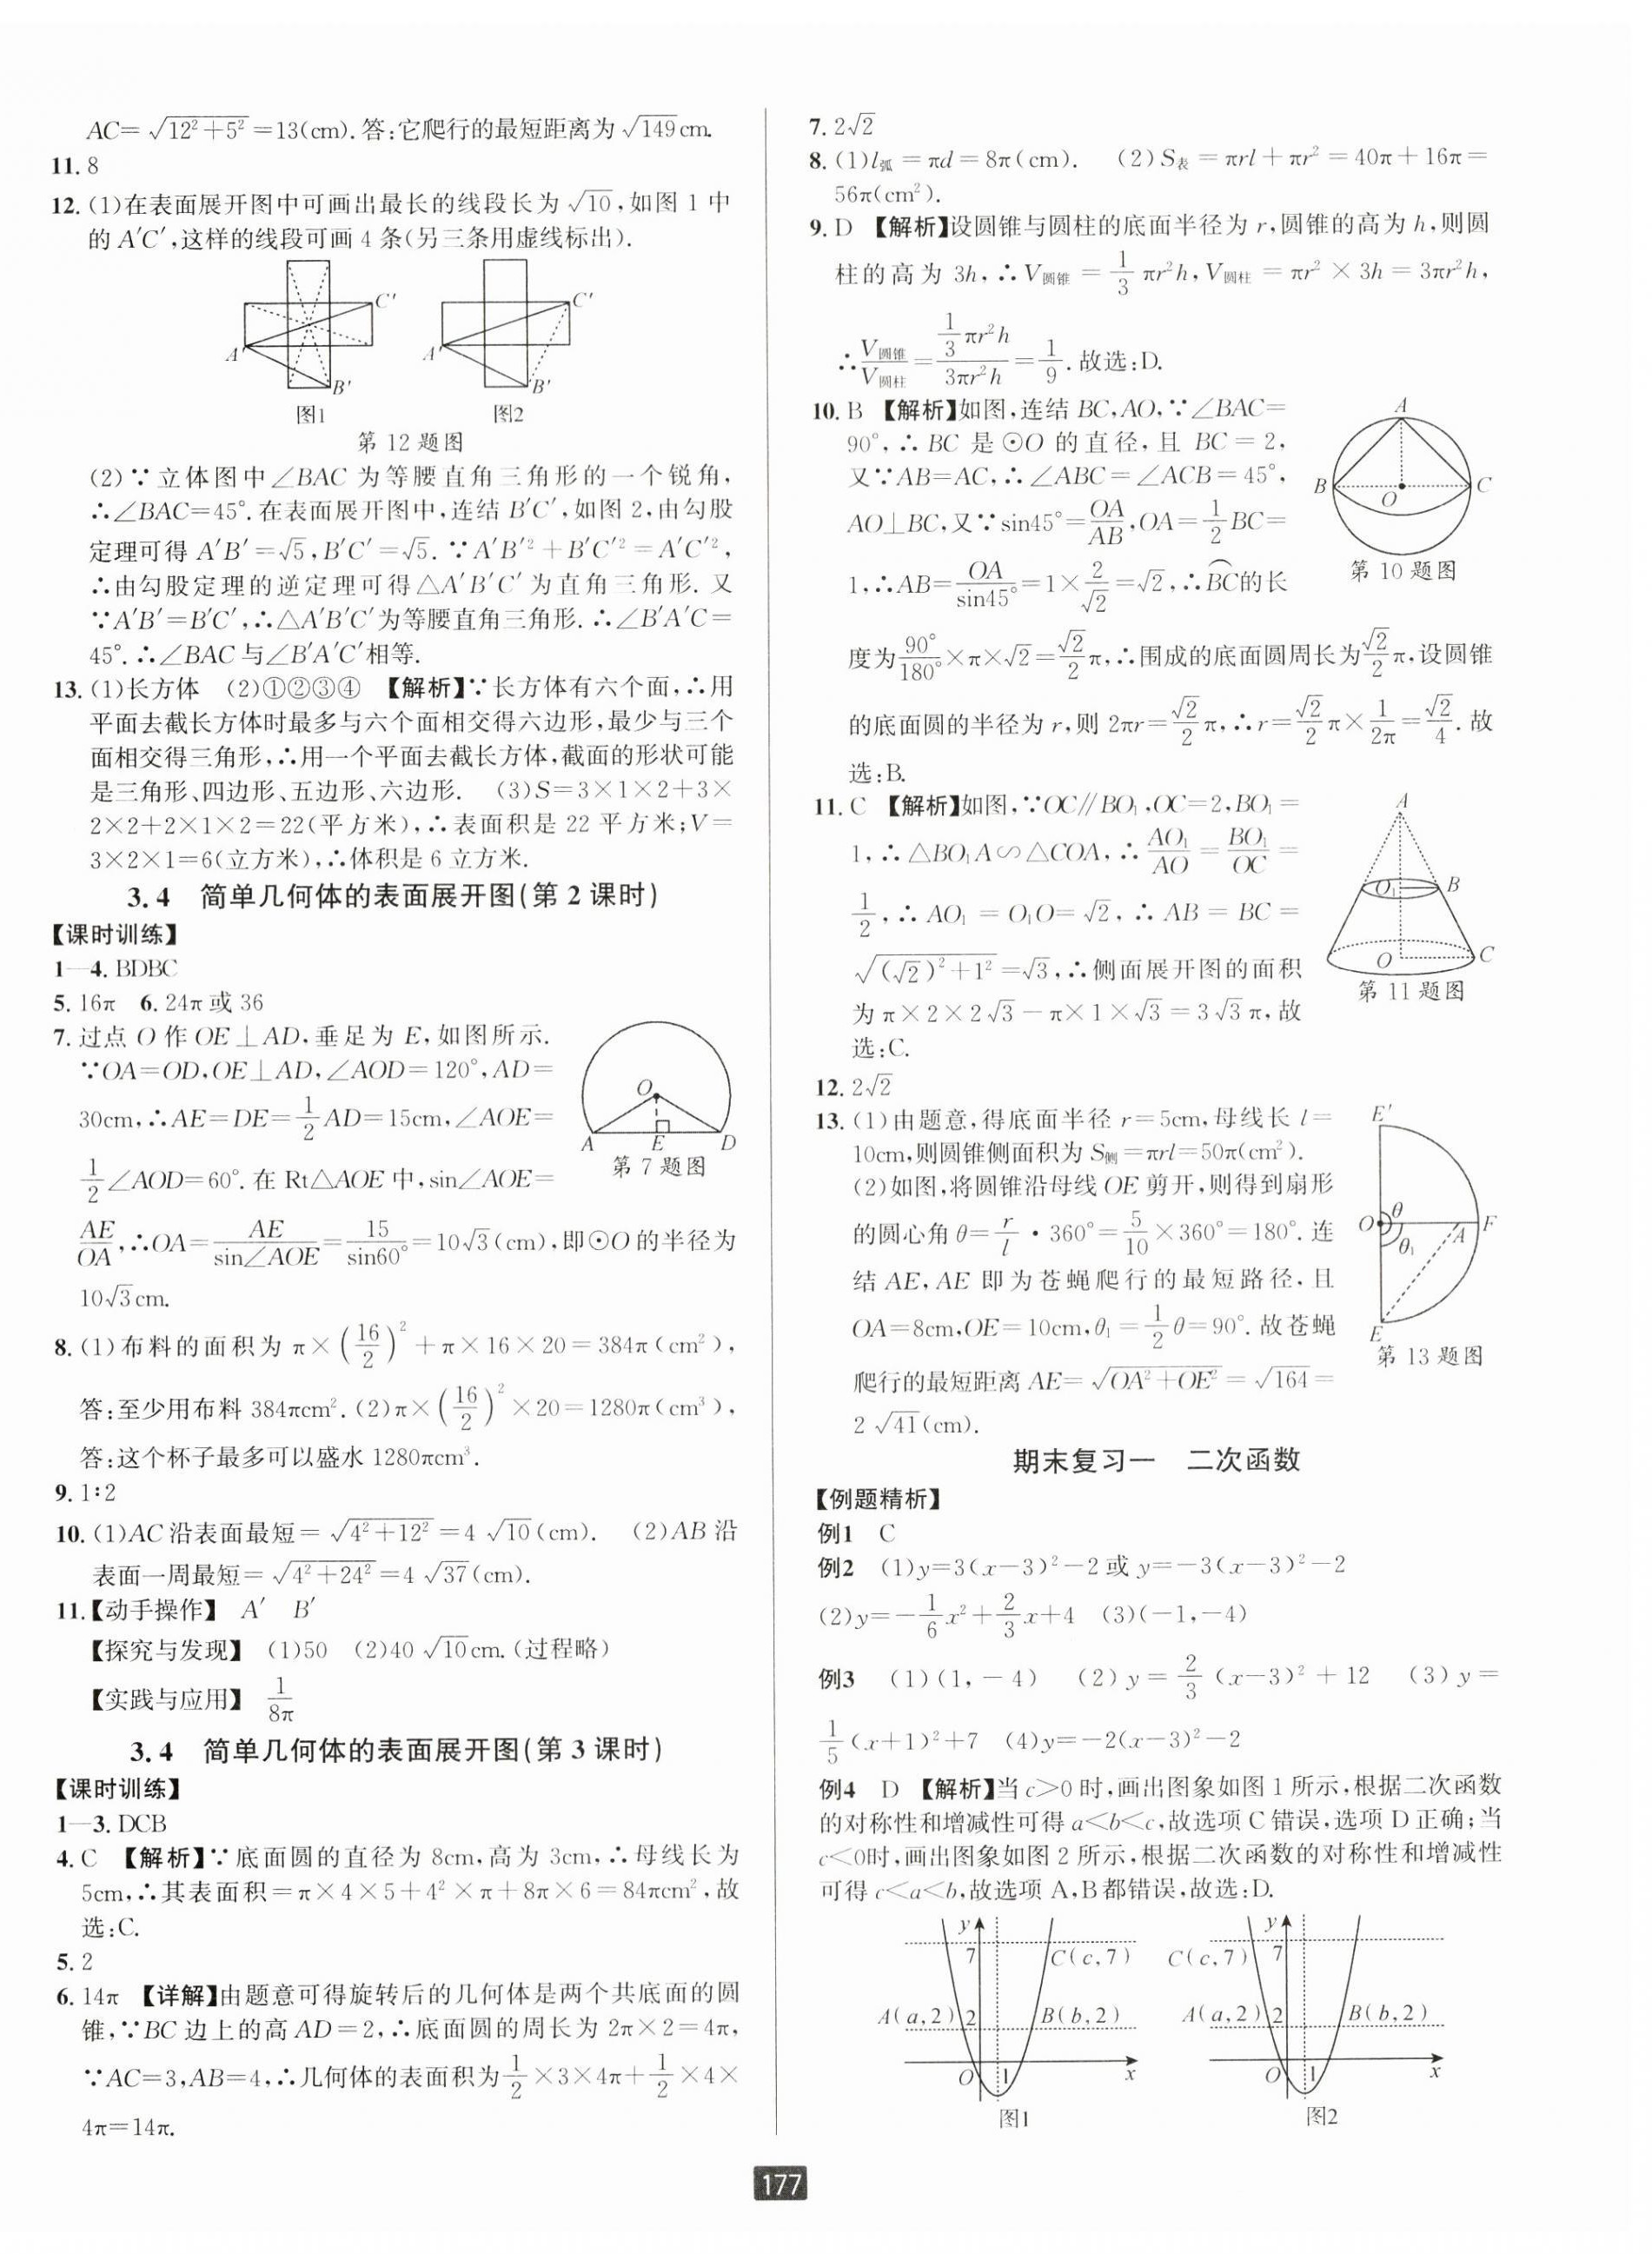 AC=√(12²+5²)=13(cm).答:它爬行的最短距离为√149cm.
11. 8
12. (1)在表面展开图中可画出最长的线段长为√10,如图1中
的A′C′,这样的线段可画4条(另三条用虚线标出).
C′ A′ B′ C′ A′ B′
图1 图2
第12题图
(2)∵立体图中∠BAC为等腰直角三角形的一个锐角,
∴∠BAC=45°.在表面展开图中,连结B′C′,如图2,由勾股
定理可得A′B′=√5,B′C′=√5.∵A′B′²+B′C′²=A′C′²,
∴由勾股定理的逆定理可得△A′B′C′为直角三角形.又
∵A′B′=B′C′,∴△A′B′C′为等腰直角三角形.∴∠B′A′C=
45°.∴∠BAC与∠B′A′C′相等.
13. (1)长方体 (2)①②③④ 【解析】∵长方体有六个面,∴用
平面去截长方体时最多与六个面相交得六边形,最少与三个
面相交得三角形,∴用一个平面去截长方体,截面的形状可能
是三角形、四边形、五边形、六边形. (3)S=3×1×2+3×
2×2+2×1×2=22(平方米),∴表面积是22平方米;V=
3×2×1=6(立方米),∴体积是6立方米.
3.4 简单几何体的表面展开图(第2课时)
【课时训练】
1—4. BDBC
5. 16π 6. 24π或36
7. 过点O作OE⊥AD,垂足为E,如图所示.
∵OA=OD,OE⊥AD,∠AOD=120°,AD=
30cm,∴AE=DE=1/2 AD=15cm,∠AOE=
1/2∠AOD=60°.在Rt△AOE中,sin∠AOE=
AE/OA,∴OA=AE/sin∠AOE=15/sin60°=10√3(cm),即⊙O的半径为
10√3cm.
O A E D
第7题图
8. (1)布料的面积为π×(16/2)²+π×16×20=384π(cm²),
答:至少用布料384πcm².(2)π×(16/2)²×20=1280π(cm³),
答:这个杯子最多可以盛水1280πcm³.
9. 1∶2
10. (1)AC沿表面最短=√(4²+12²)=4√10(cm). (2)AB沿
表面一周最短=√(4²+24²)=4√37(cm).
11.【动手操作】 A′ B′
【探究与发现】 (1)50 (2)40√10cm.(过程略)
【实践与应用】 1/8π
3.4 简单几何体的表面展开图(第3课时)
【课时训练】
1—3. DCB
4. C 【解析】∵底面圆的直径为8cm,高为3cm,∴母线长为
5cm,∴其表面积=π×4×5+4²×π+8π×6=84πcm²,故
选:C.
5. 2
6. 14π 【详解】由题意可得旋转后的几何体是两个共底面的圆
锥,∵BC边上的高AD=2,∴底面圆的周长为2π×2=4π,
∵AC=3,AB=4,∴几何体的表面积为1/2×3×4π+1/2×4×
4π=14π.
7. 2√2
8. (1)l弧=πd=8π(cm). (2)S表=πrl+πr²=40π+16π=
56π(cm²).
9. D 【解析】设圆锥与圆柱的底面半径为r,圆锥的高为h,则圆
柱的高为3h,∴V圆锥=1/3 πr²h,V圆柱=πr²×3h=3πr²h,
∴V圆锥/V圆柱=(1/3 πr²h)/(3πr²h)=1/9.故选:D.
10. B 【解析】如图,连结BC,AO,∵∠BAC=
90°,∴BC是⊙O的直径,且BC=2,
又∵AB=AC,∴∠ABC=∠ACB=45°,
AO⊥BC,又∵sin45°=OA/AB,OA=1/2 BC=
1,∴AB=OA/sin45°=1×2/√2=√2,∴B͡C的长
度为90°/180°×π×√2=√2/2 π,∴围成的底面圆周长为√2/2 π,设圆锥
的底面圆的半径为r,则2πr=√2/2 π,∴r=√2/2 π×1/2π=√2/4.故
选:B.
A B O C
第10题图
11. C 【解析】如图,∵OC∥BO₁,OC=2,BO₁=
1,∴△BO₁A∽△COA,∴AO₁/AO=BO₁/OC=
1/2,∴AO₁=O₁O=√2,∴AB=BC=
√((√2)²+1²)=√3,∴侧面展开图的面积
为π×2×2√3-π×1×√3=3√3π,故
选:C.
A O₁ B O C
第11题图
12. 2√2
13. (1)由题意,得底面半径r=5cm,母线长l=
10cm,则圆锥侧面积为S侧=πrl=50π(cm²).
(2)如图,将圆锥沿母线OE剪开,则得到扇形
的圆心角θ=r/l·360°=5/10×360°=180°.连
结AE,AE即为苍蝇爬行的最短路径,且
OA=8cm,OE=10cm,θ₁=1/2θ=90°.故苍蝇
爬行的最短距离AE=√(OA²+OE²)=√164=
2√41(cm).
E′ O θ F θ₁ A E
第13题图
期末复习一 二次函数
【例题精析】
例1 C
例2 (1)y=3(x-3)²-2或y=-3(x-3)²-2
(2)y=-1/6x²+2/3x+4 (3)(-1,-4)
例3 (1)(1,-4) (2)y=2/3(x-3)²+12 (3)y=
1/5(x+1)²+7 (4)y=-2(x-3)²-2
例4 D 【解析】当c>0时,画出图象如图1所示,根据二次函数
的对称性和增减性可得a<b<c,故选项C错误,选项D正确;当
c<0时,画出图象如图2所示,根据二次函数的对称性和增减性
可得c<a<b,故选项A,B都错误,故选:D.
y 7 C(c,7) A(a,2) 2 B(b,2) O 1 x
图1
y C(c,7) 7 A(a,2) 2 B(b,2) O 1 x
图2
177